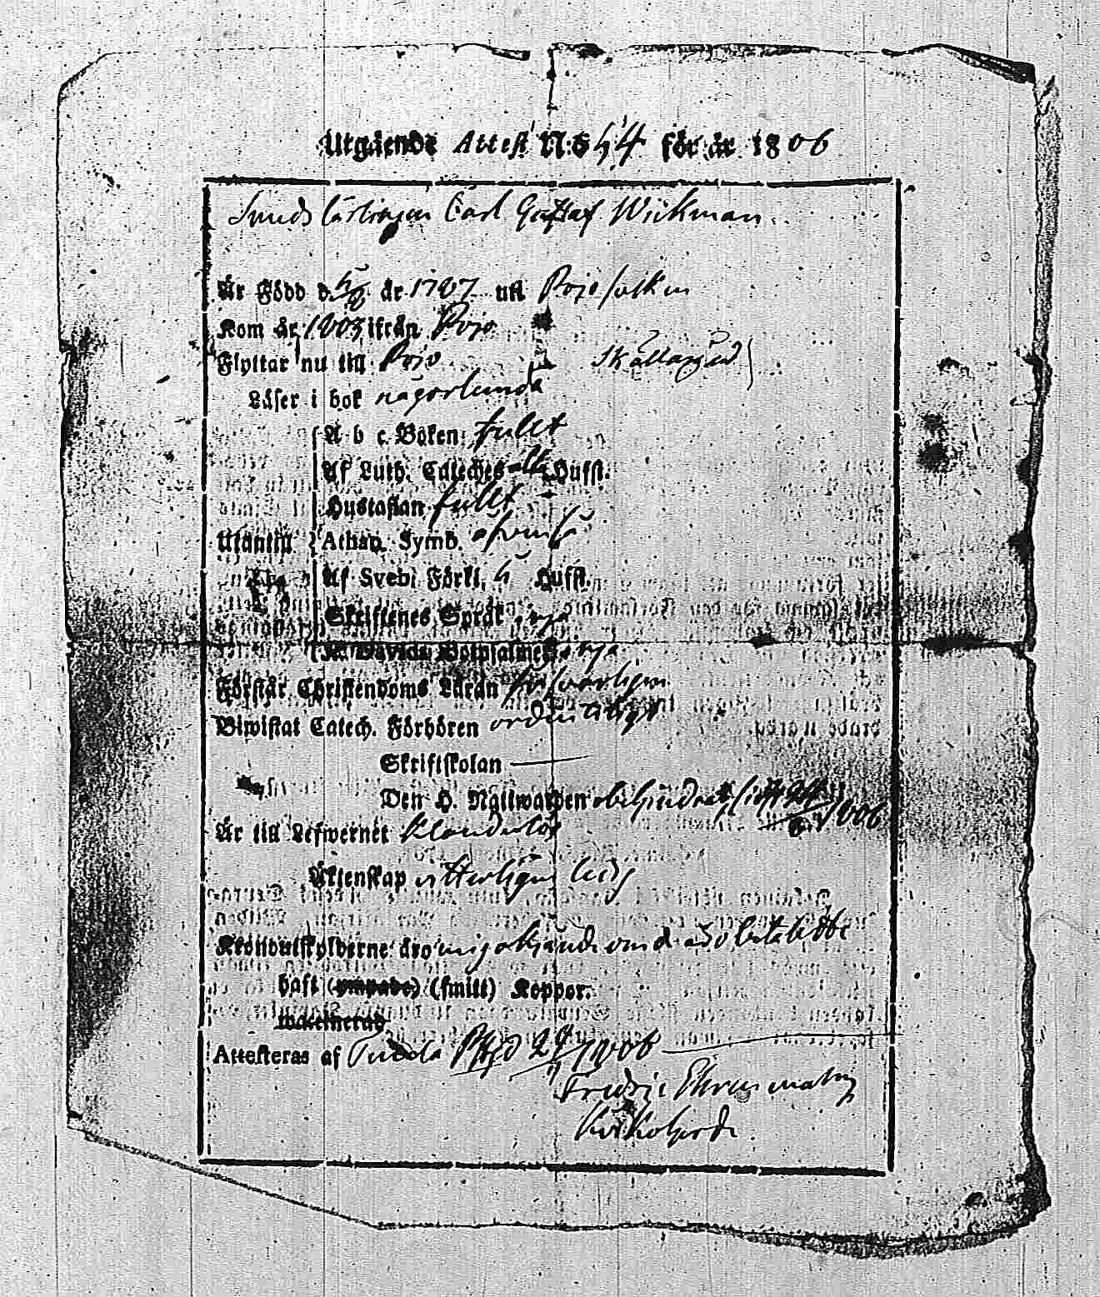 Utgående Attest N:o 54 för år 1806
Smeds Lärlingen Carl Gustaf Wickman
Är Född d. 5/8 år 1787 uti Pojo sockn
Kom år 1803 ifrån Pojo
Flyttar nu till Pojo Skållargård
Läser i bok någorlunda
A b c Boken fullt
Af Luth. Cateches alla Hufst.
Hustaflan fullt
Utantill Athan. Symb.
Af Svebi: Förkl. 4 Hufst.
Skriftenes Språk
K. Davids Botpsalmer
Förstår Christendoms Läran försvarligen
Biwistat Catech. Förhören ordenteligt
Skriftskolan —
Den H. Nattwarden obehindrat sist 24/6 1806
Är till Lefwernet Klanderlös
Äktenskap vitterligen ledig
Kronoutskylderne äro
haft (ympade) (smitt) Koppor.
wakcinerad
Attesteras af Pungla Pftgd 24/11 1806
Fredric Ehrnmalm
Kyrkoherde.